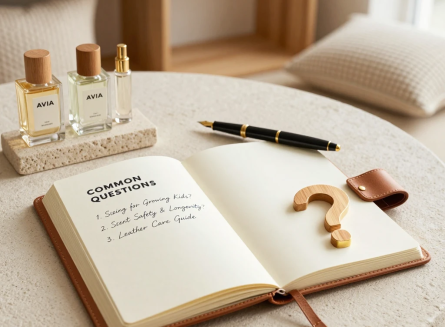 AVIA
AVIA
COMMON
QUESTIONS
1. Sizing for Growing Kids?
2. Scent Safety & Longevity?
3. Leather Care Guide